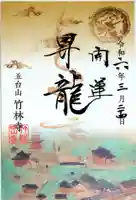 令和六年三月二四日
開運
昇龍
五台山
竹林寺